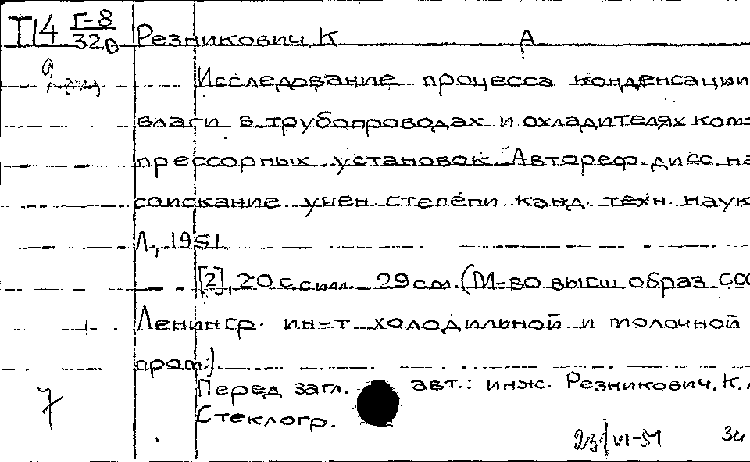 П4 Г-8
32в Резникович, К А
Исследование процесса конденсации
влаги в трубопроводах и охладителях ком-
прессорных установок. Автореф. дисс. на
соискание учен. степени канд. техн. наук
Л., 1951
[2], 20 с. с илл. 29 см. (М-во высш. образ. ССС
Ленингр. ин-т холодильной и молочной
пром.)
Перед загл. авт.: инж. Резникович, К.
7
Стеклогр.
23/VI-51 34